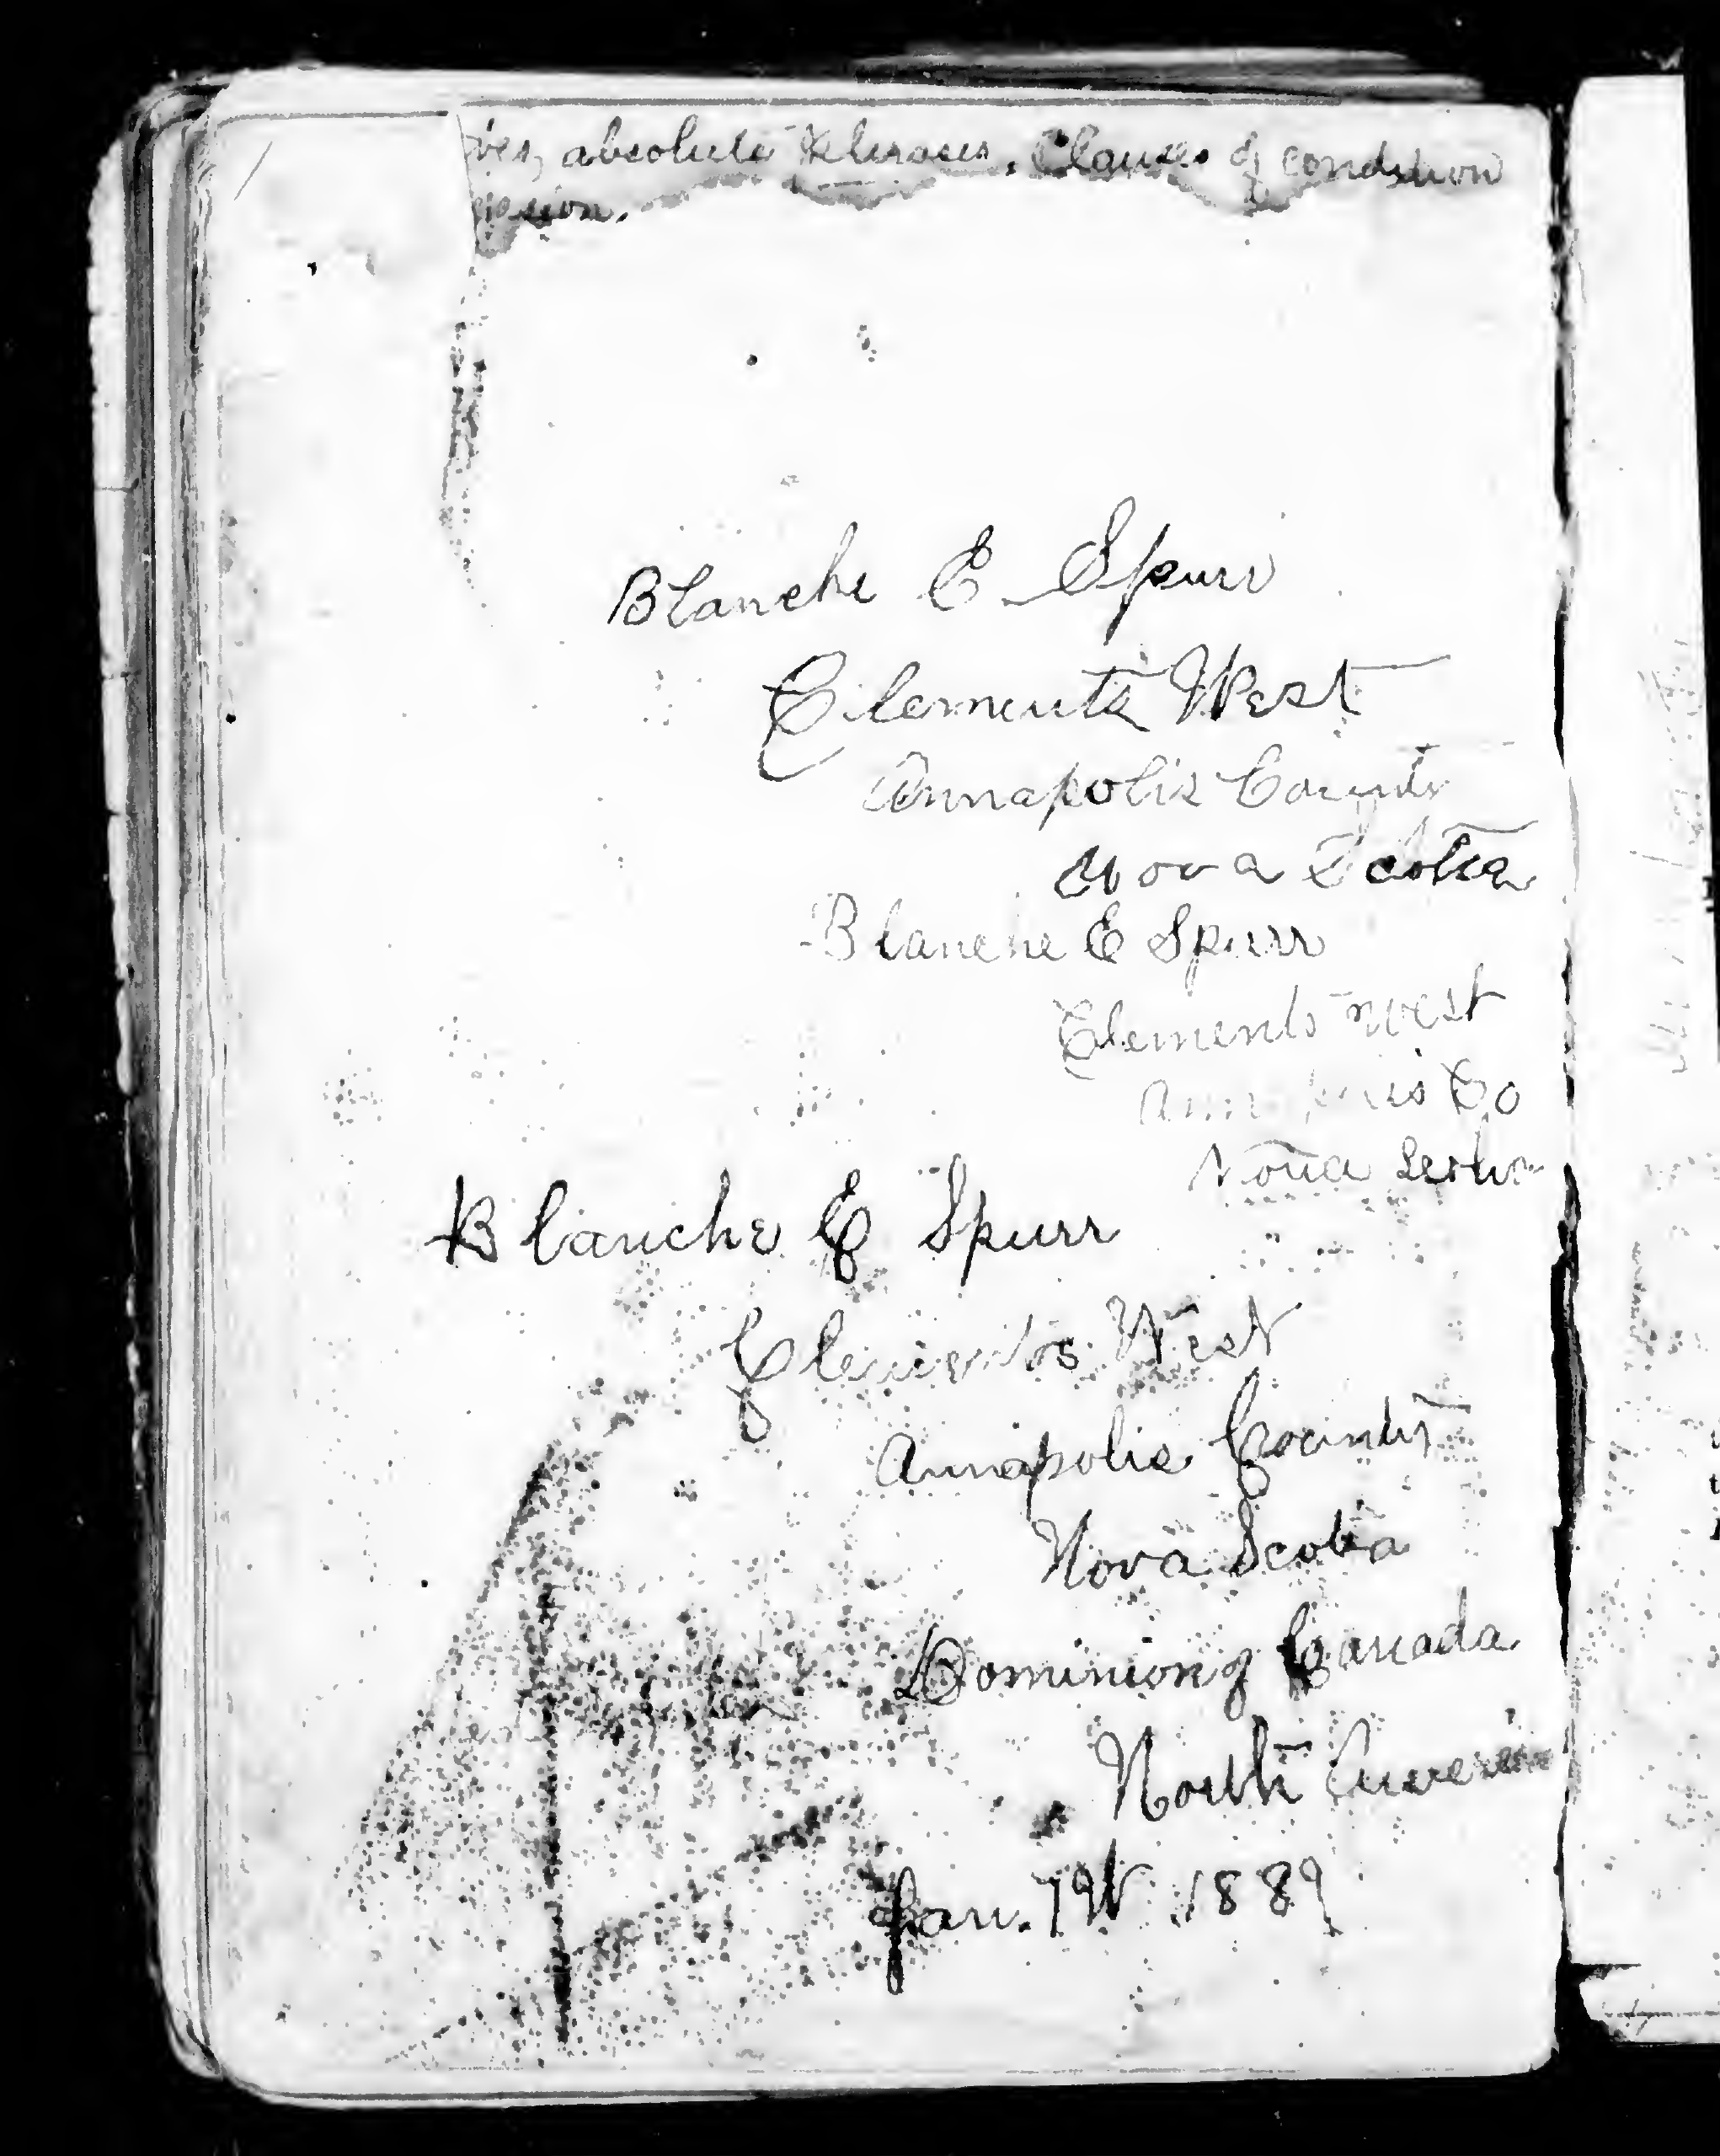 ves, absolute Clauses. Clauses of condition
ession.
Blanche E Spurr
Clements West
Annapolis County
Nova Scotia
Blanche E Spurr
Clements West
Annapolis Co
Nova Scotia
Blanche E Spurr
Clements West
Annapolis County
Nova Scotia
Dominion of Canada
North America
Jan. 7th 1889